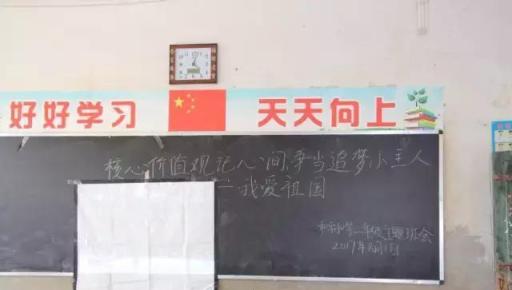 好好学习 天天向上
核心价值观记心间,争当追梦小主人
—我爱祖国
二年级主题班会